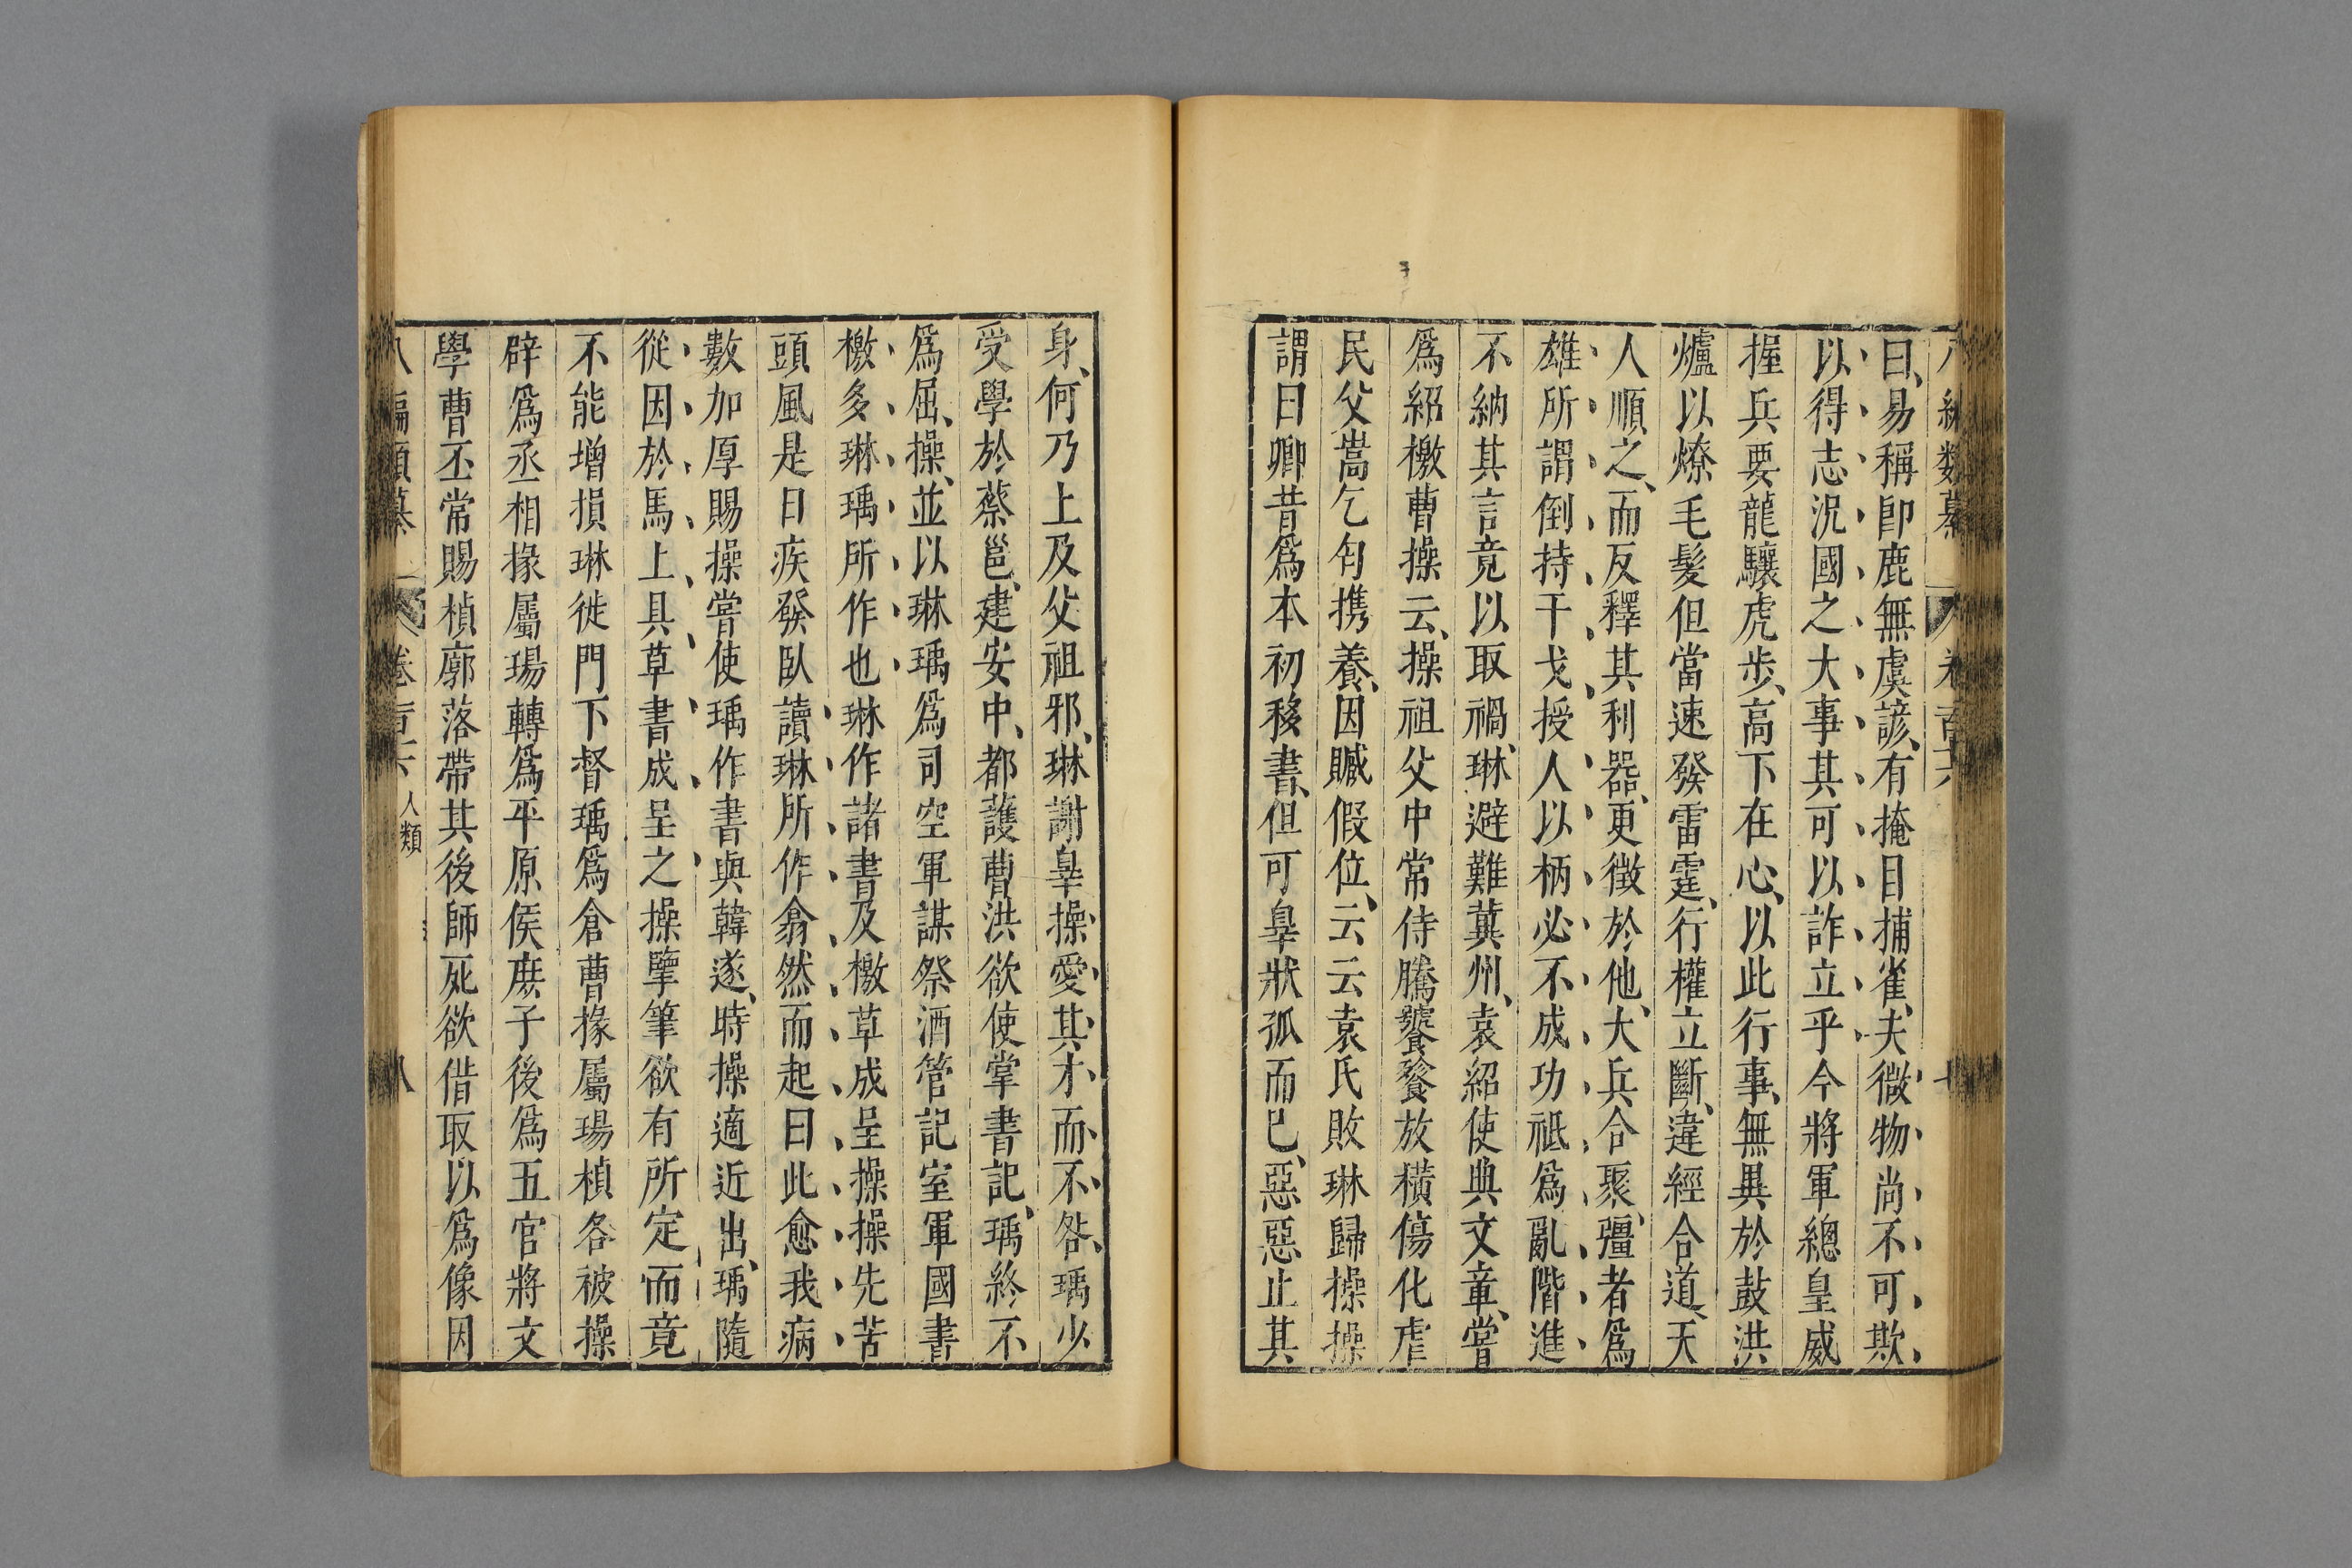 曰易稱卽鹿無虞諺有掩目捕雀夫微物尚不可欺
以得志況國之大事其可以詐立乎今將軍總皇威
握兵要龍驤虎步高下在心以此行事無異於鼓洪
爐以燎毛髮但當速發雷霆行權立斷違經合道天
人順之而反釋其利器更徵於他大兵合聚彊者爲
雄所謂倒持干戈授人以柄必不成功祇爲亂階進
不納其言竟以取禍琳避難冀州袁紹使典文章嘗
爲紹檄曹操云操祖父中常侍騰饕餮放橫傷化虐
民父嵩乞匄携養因贓假位云云袁氏敗琳歸操操
謂曰卿昔爲本初移書但可辠狀孤而已惡惡止其
身何乃上及父祖邪琳謝辠操愛其才而不咎瑀少
受學於蔡邕建安中都護曹洪欲使掌書記瑀終不
爲屈操並以琳瑀爲司空軍謀祭酒管記室軍國書
檄多琳瑀所作也琳作諸書及檄草成呈操操先苦
頭風是日疾發臥讀琳所作翕然而起曰此愈我病
數加厚賜操嘗使瑀作書與韓遂時操適近出瑀隨
從因於馬上具草書成呈之操擥筆欲有所定而竟
不能增損琳徙門下督瑀爲倉曹掾屬瑒楨各被操
辟爲丞相掾屬瑒轉爲平原侯庶子後爲五官將文
學曹丕常賜楨廓落帶其後師死欲借取以爲像因
八編類纂 卷百六 人類 八